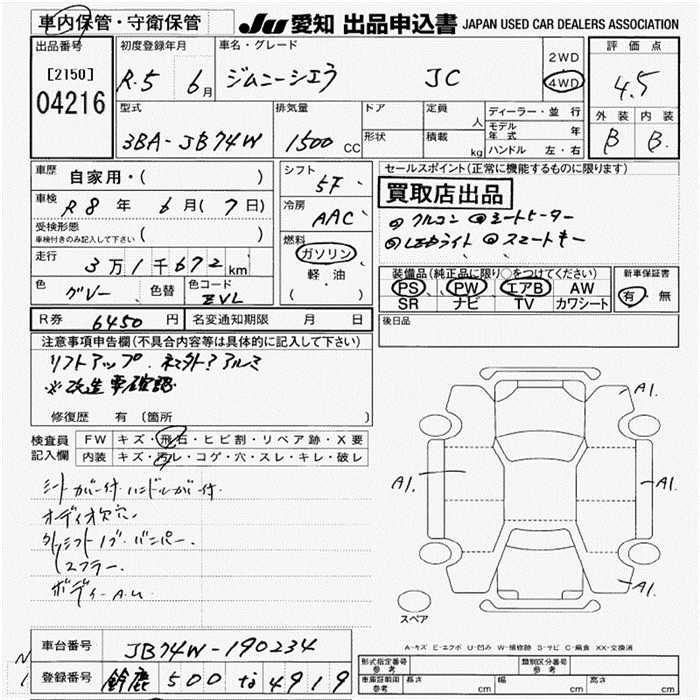 車内保管・守衛保管
JU 愛知 出品申込書 JAPAN USED CAR DEALERS ASSOCIATION
出品番号
[2150]
04216
初度登録年月
R.5 6月
車名・グレード
ジムニーシエラ JC
2WD
4WD
評価点
4.5
外装 内装
B B
型式
3BA-JB74W
排気量
1500 CC
ドア
形状
定員 人
積載 kg
ディーラー・並行
モデル年式 年
ハンドル 左・右
車歴 自家用・( )
車検 R8年 6月(7日)
受検形態
車検付きのみ記入して下さい ( )
走行 3万1千672km
色 グレー 色替 色コード ZVL
シフト 5F
冷房 AAC
燃料
ガソリン
軽・油
( )
セールスポイント(正常に機能するものに限ります)
買取店出品
◎クルコン ◎シートヒーター
◎LEDライト ◎スマートキー
装備品(純正品に限り○をつけてください)
PS PW エアB AW
SR ナビ TV カワシート
新車保証書
有・無
R券 6450円 名変通知期限 月 日
後日品
注意事項申告欄(不具合内容等は具体的に記入して下さい)
リフトアップ. ネエ外マアルミ
※改造車確認
修復歴 有 〔箇所 〕
検査員記入欄
FW キズ・飛石・ヒビ割・リペア跡・X要
内装 キズ・汚レ・コゲ・穴・スレ・キレ・破レ
シートカバー付. ハンドルカバー付
オーディオ欠穴
外シフトノブ. バンパー.
マフラー.
ボディーA.U
A1.
A1.
A1.
A1.
スペア
A-キズ E-エクボ U-凹み W-補修跡 S-サビ C-腐食 XX-交換済
車台番号 JB74W-190234
登録番号 鈴鹿 500 な 4919
型式指定番号 類別区分番号
車庫証明用参考 長さ cm 幅 cm 高さ cm